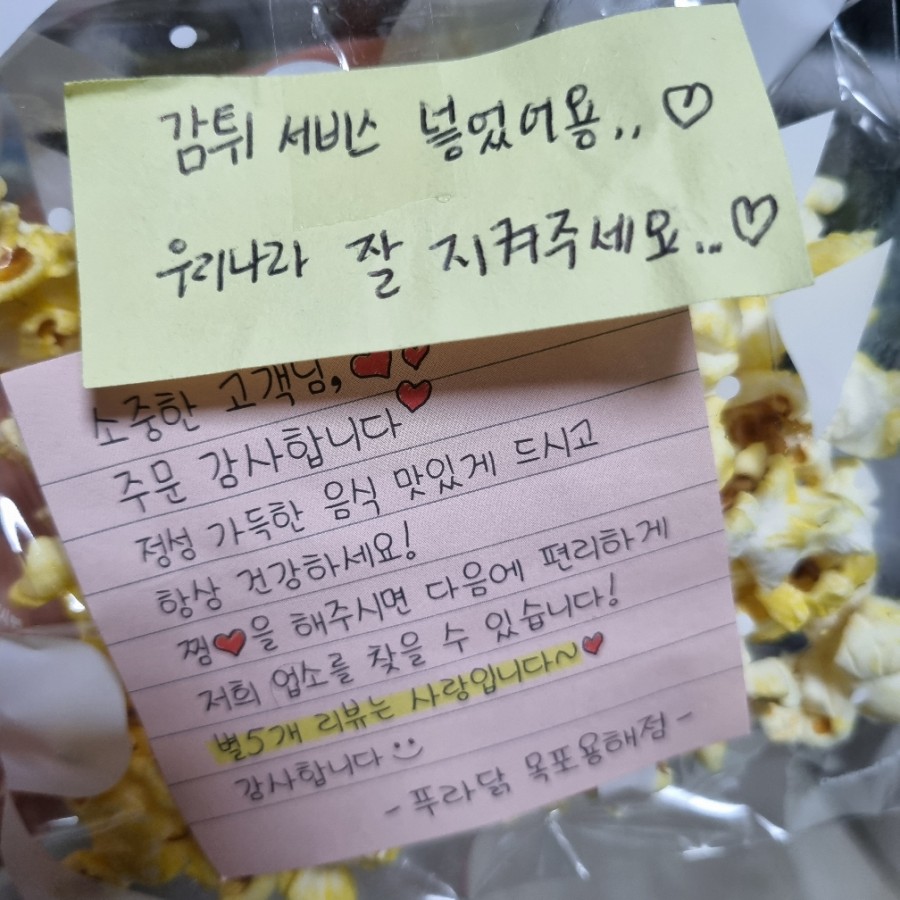 감튀 서비스 넣었어용.. ♡
우리나라 잘 지켜주세요... ♡
소중한 고객님, ♥♥
주문 감사합니다♥
정성 가득한 음식 맛있게 드시고
항상 건강하세요!
찜♥을 해주시면 다음에 편리하게
저희 업소를 찾을 수 있습니다!
별5개 리뷰는 사랑입니다~♥
감사합니다 :)
- 푸라닭 목포용해점 -